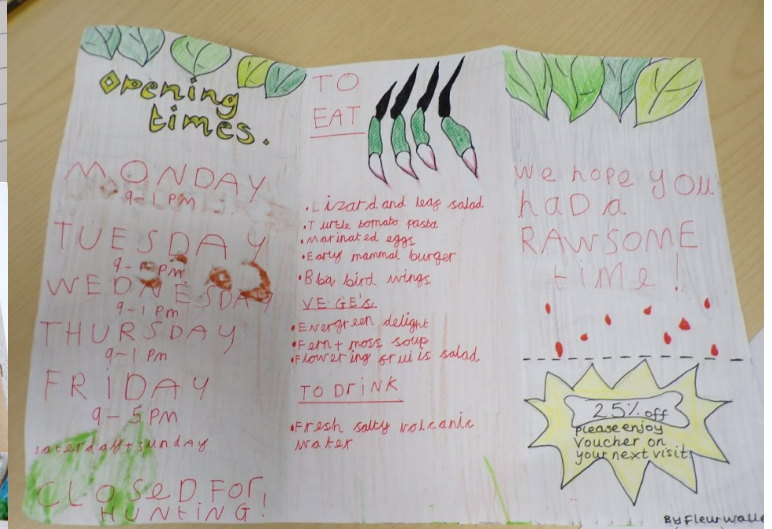 Opening
times.
MONDAY
9-1 pm
TUESDAY
9- pm
WEDNESDAY
9-1 pm
THURSDAY
9-1 Pm
FRIDAY
9-5 PM
saterday+sunday
CLOSED FOR
HUNTING!
TO
EAT
•Lizard and leaf salad
•Turtle tomato pasta
•Marinated eggs
•Early mammal burger
•Bbq bird wings
VEGE's
•Evergreen delight
•Fern+moss soup
•Flowering fruis salad
TO DrinK
•Fresh salty volcanic
water
we hope you
had a
RAWSOME
time!
25% off
please enjoy
voucher on
your next visit
By Fleur